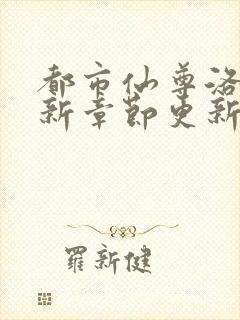 都市仙尊洛
新章節更新
羅新健